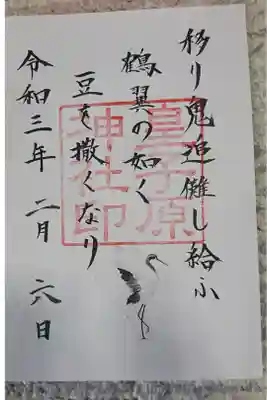 移り鬼追儺し給ふ
鶴翼の如く
豆を撒くなり
令和三年 二月 六日
皇子原
神社印